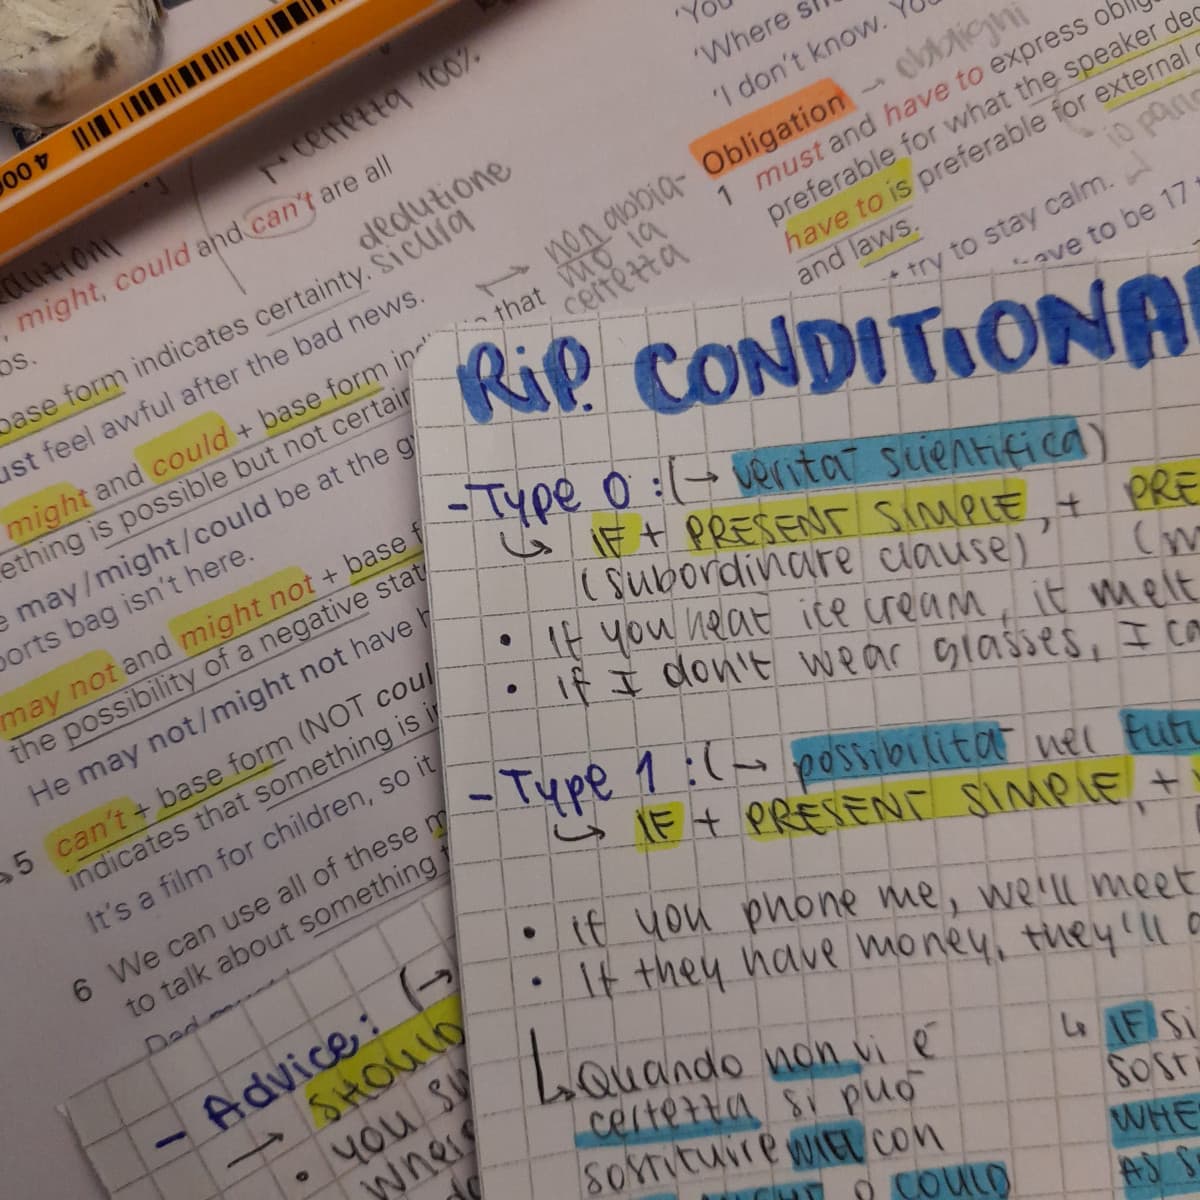 4000
certezza 100%
might, could and can't are all
deduzione
sicura
base form indicates certainty.
ust feel awful after the bad news.
that
non abbia-
mo la
certezza
might and could + base form
ething is possible but not certain
may/might/could be at the g
ports bag isn't here.
may not and might not + base f
the possibility of a negative stat
He may not/might not have
5 can't + base form (NOT coul
indicates that something is i
It's a film for children, so it
6 We can use all of these m
to talk about something
'You
'Where
'I don't know. Yo
Obligation → obblighi
1 must and have to express oblig
preferable for what the speaker dec
have to is preferable for external
and laws.
io
try to stay calm.
ave to be 17
RIP. CONDITIONA
- Type 0 : (→ verità scientifica)
↳ IF + PRESENT SIMPLE, + PRE
(subordinare clause)
• If you heat ice cream, it melt
• if I don't wear glasses, I ca
- Type 1 : (→ possibilità nel futu
↳ IF + PRESENT SIMPLE, +
• if you phone me, we'll meet
• If they have money, they'll
↳ Quando non vi è
certezza si può
sostituire WILL con
MIGHT o COULD
↳ IF si
sosti
WHE
AS S
- Advice: (→
→ SHOULD
• you